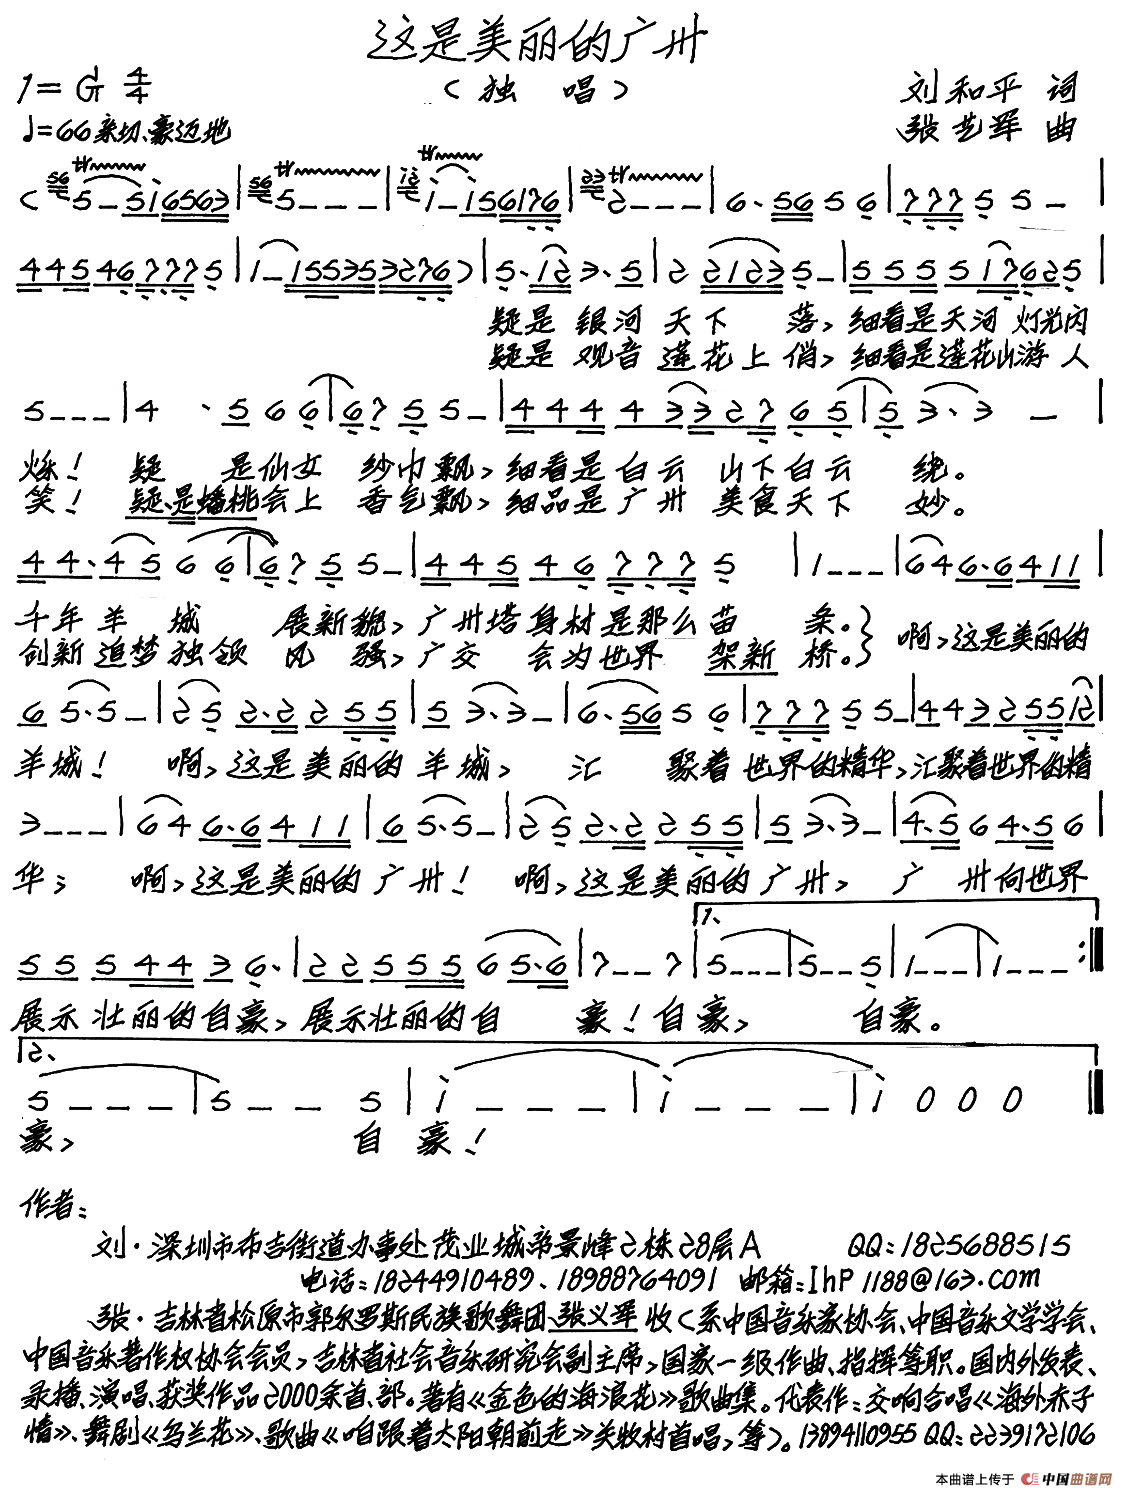 这是美丽的广州
1=G 4/4
（独 唱）
刘和平 词
♩=66 亲切、豪迈地
张艺军 曲
疑是 银河 天下 落，细看是天河 灯光闪
疑是 观音 莲花上 俏，细看是莲花山游 人
烁！疑 是仙女 纱巾飘，细看是白云 山下白云 绕。
笑！疑是蟠桃会上 香气飘，细品是广州 美食天下 妙。
千年羊 城 展新貌，广州塔身材是那么苗 条。
创新追梦独领 风 骚，广交 会为世界 架新 桥。
啊，这是美丽的
羊城！ 啊，这是美丽的 羊城， 汇 聚着世界的精华，汇聚着世界的精
华； 啊，这是美丽的 广州！ 啊，这是美丽的 广州， 广 州向世界
1、
展示 壮丽的自豪，展示壮丽的自 豪！自豪， 自豪。
2、
豪， 自 豪！
作者：
刘·深圳市布吉街道办事处茂业城帝景峰2栋28层A QQ：1825688515
电话：18244910489、18988764091 邮箱：Ihp1188@163.com
张·吉林省松原市郭尔罗斯民族歌舞团张义军收（系中国音乐家协会、中国音乐文学学会、
中国音乐著作权协会会员，吉林省社会音乐研究会副主席，国家一级作曲、指挥等职。国内外发表、
录播、演唱、获奖作品2000余首、部。著有《金色的海浪花》歌曲集。代表作：交响合唱《海外赤子
情》、舞剧《乌兰花》、歌曲《咱跟着太阳朝前走》关牧村首唱，等）。13894110955 QQ：2239172106
本曲谱上传于 中国曲谱网